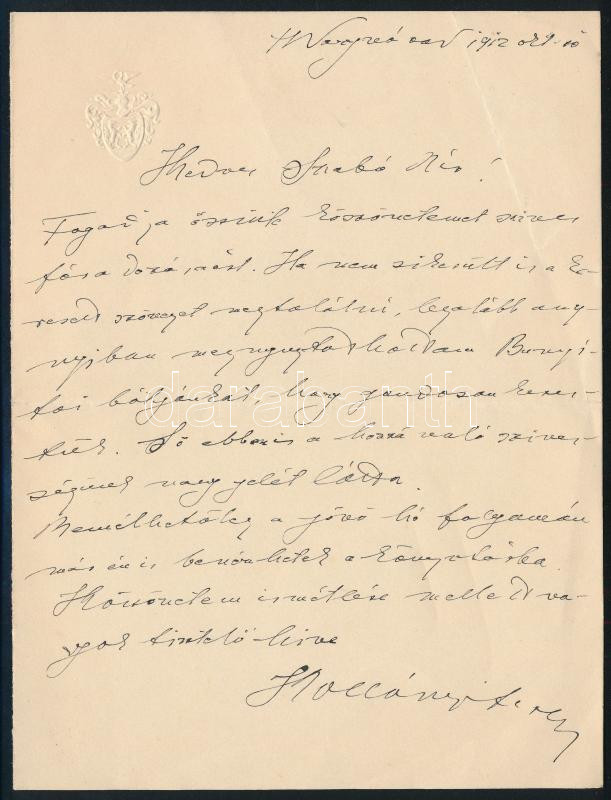 Nagyvárad 1912 okt.
Kedves Szabó
Fogadja őszinte köszönetemet szíves
fáradozásáért. Ha nem sikerült is a ke-
resett szöveget megtalálni, legalább any-
nyiban megnyugtathattam Bunyi-
tai bátyánkat, hogy gondosan keres-
tük. Ő ebben is a hozzá való szíves-
ségének nagy jelét látta.
Remélhetőleg a jövő hó folyamán
már én is benézhetek a könyvtárba.
Köszönetem ismétlése mellett va-
gyok tisztelő híve
Kollányi
darabanth